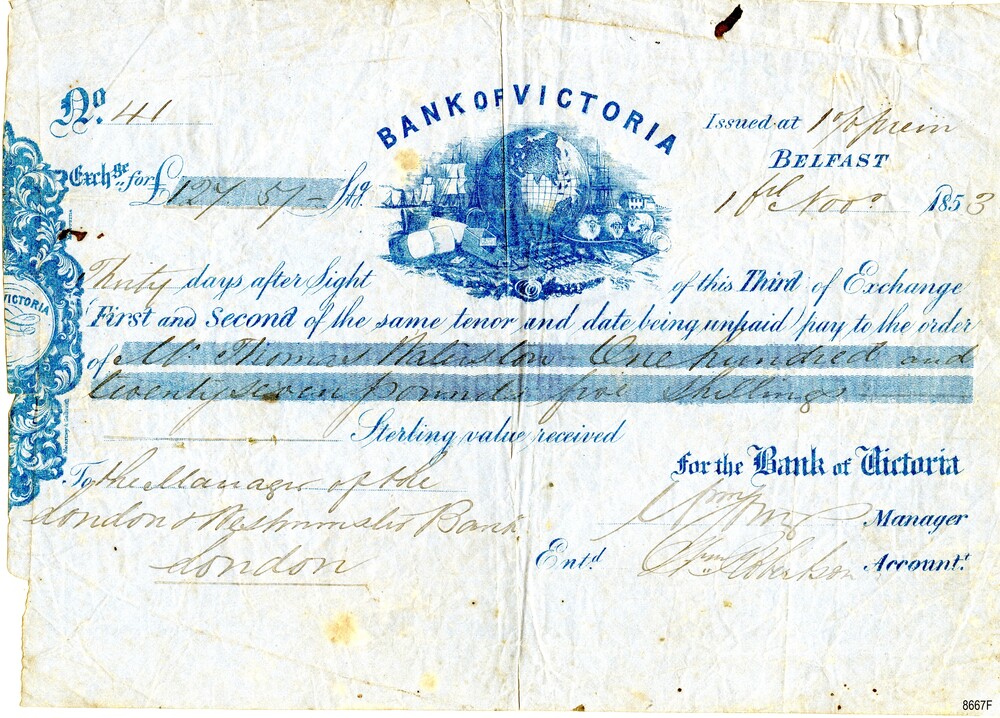 BANK OF VICTORIA
No. 41
Issued at
BELFAST
Exchge for £127.5/- Stg.
1st Novr 1853
Thirty days after Sight of this Third of Exchange
First and Second of the same tenor and date being unpaid pay to the order
of Mr Thomas One hundred and
twenty seven pounds five shillings
Sterling value received
To the Manager of the
London & Westminster Bank
London
For the Bank of Victoria
Manager
Entd. Robertson Accountt.
VICTORIA
8667F